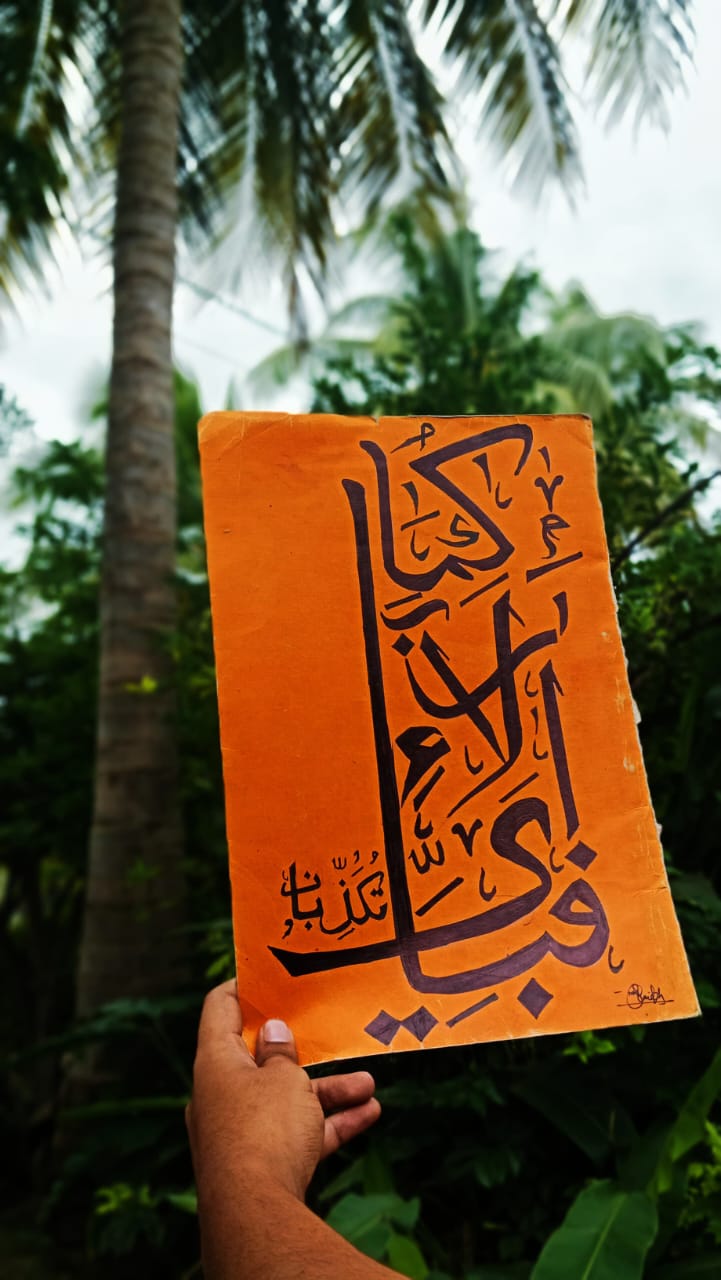 فَبِاَيِّ
اٰلَآءِ
رَبِّكُمَا
تُكَذِّبَانِ